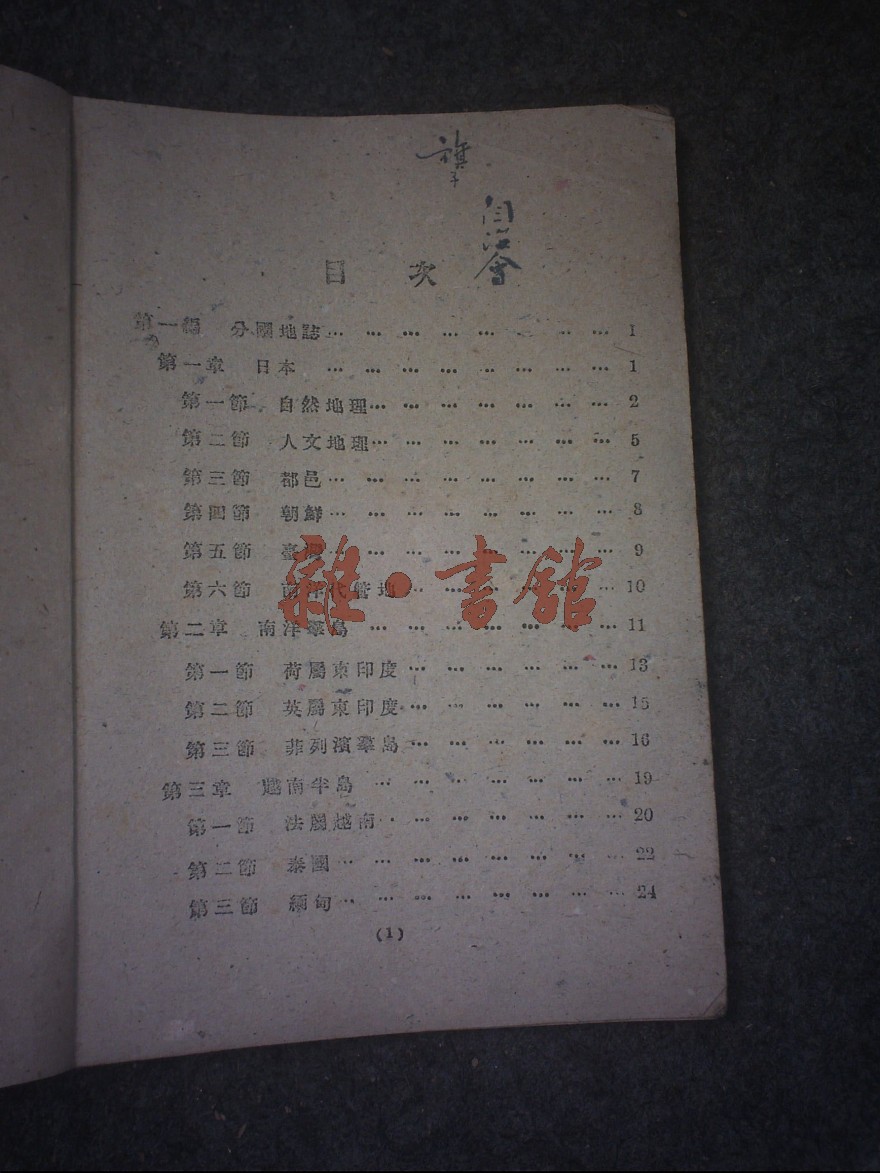 自治會
目 次
第一編 分國地誌… … … … … … … … 1
第一章 日本 … … … … … … … … 1
第一節 自然地理… … … … … … … 2
第二節 人文地理… … … … … … … 5
第三節 都邑… … … … … … … … 7
第四節 朝鮮… … … … … … … … 8
第五節 臺灣… … … … … … … … 9
第六節 南洋代管地… … … … … … 10
第二章 南洋羣島 … … … … … … … 11
第一節 荷屬東印度… … … … … … 13
第二節 英屬東印度… … … … … … 15
第三節 菲列濱羣島… … … … … … 16
第三章 越南半島 … … … … … … … 19
第一節 法屬越南… … … … … … … 20
第二節 泰國… … … … … … … … 22
第三節 緬甸… … … … … … … … 24
(1)
雜·書館